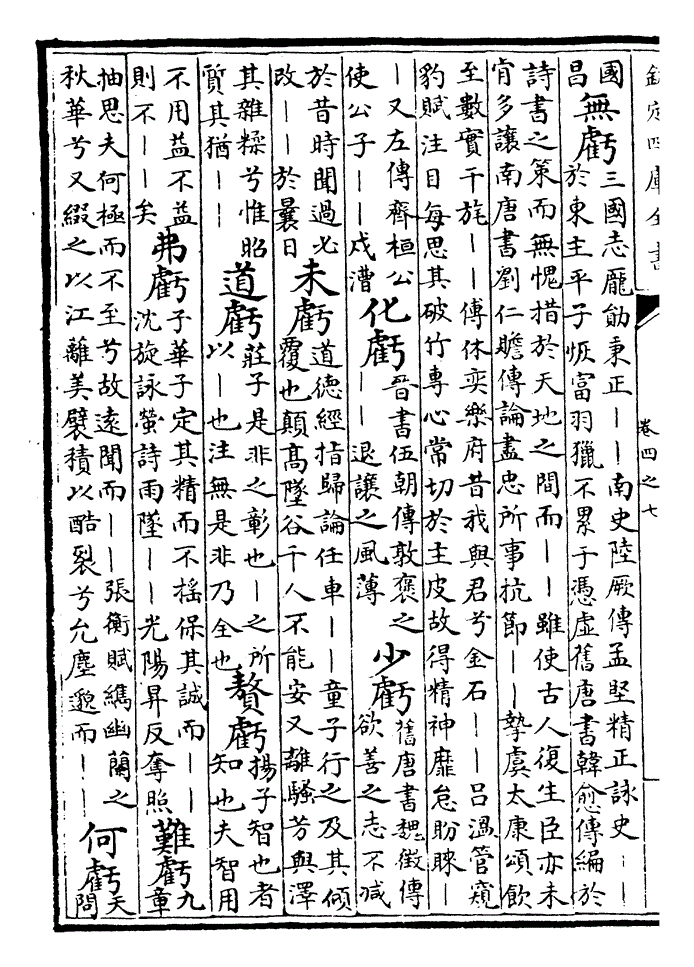 欽定四庫全書
卷四之七
國
昌
無虧
三國志龐勛秉正——南史陸厥傳孟堅精正詠史——
於東主平子恢富羽獵不累于憑虛舊唐書韓愈傳編於
詩書之策而無愧措於天地之間而——雖使古人復生臣亦未
肯多讓南唐書劉仁贍傳論盡忠所事抗節——摯虞太康頌飲
至數實干旄——傅休奕樂府昔我與君兮金石——呂溫管窺
豹賦注目每思其破竹專心常切於主皮故得精神靡怠盼睞—
—又左傳齊桓公
使公子——戍漕
化虧
晉書伍朝傳敦褒之
——退讓之風薄
少虧
舊唐書魏徵傳
欲善之志不減
於昔時聞過必
改——於曩日
未虧
道德經指歸論任車——童子行之及其傾
覆也顛高墜谷千人不能安又離騷芳與澤
其雜糅兮惟昭
質其猶——
道虧
莊子是非之彰也—之所
以—也注無是非乃全也
贅虧
揚子智也者
知也夫智用
不用益不益
則不——矣
弗虧
子華子定其精而不搖保其誠而——
沈旋詠螢詩雨墜——光陽昇反奪照
難虧
九
章
抽思夫何極而不至兮故遠聞而——張衡賦繡幽蘭之
秋華兮又綴之以江離美襞積以酷裂兮允塵邈而——
何虧
天
問